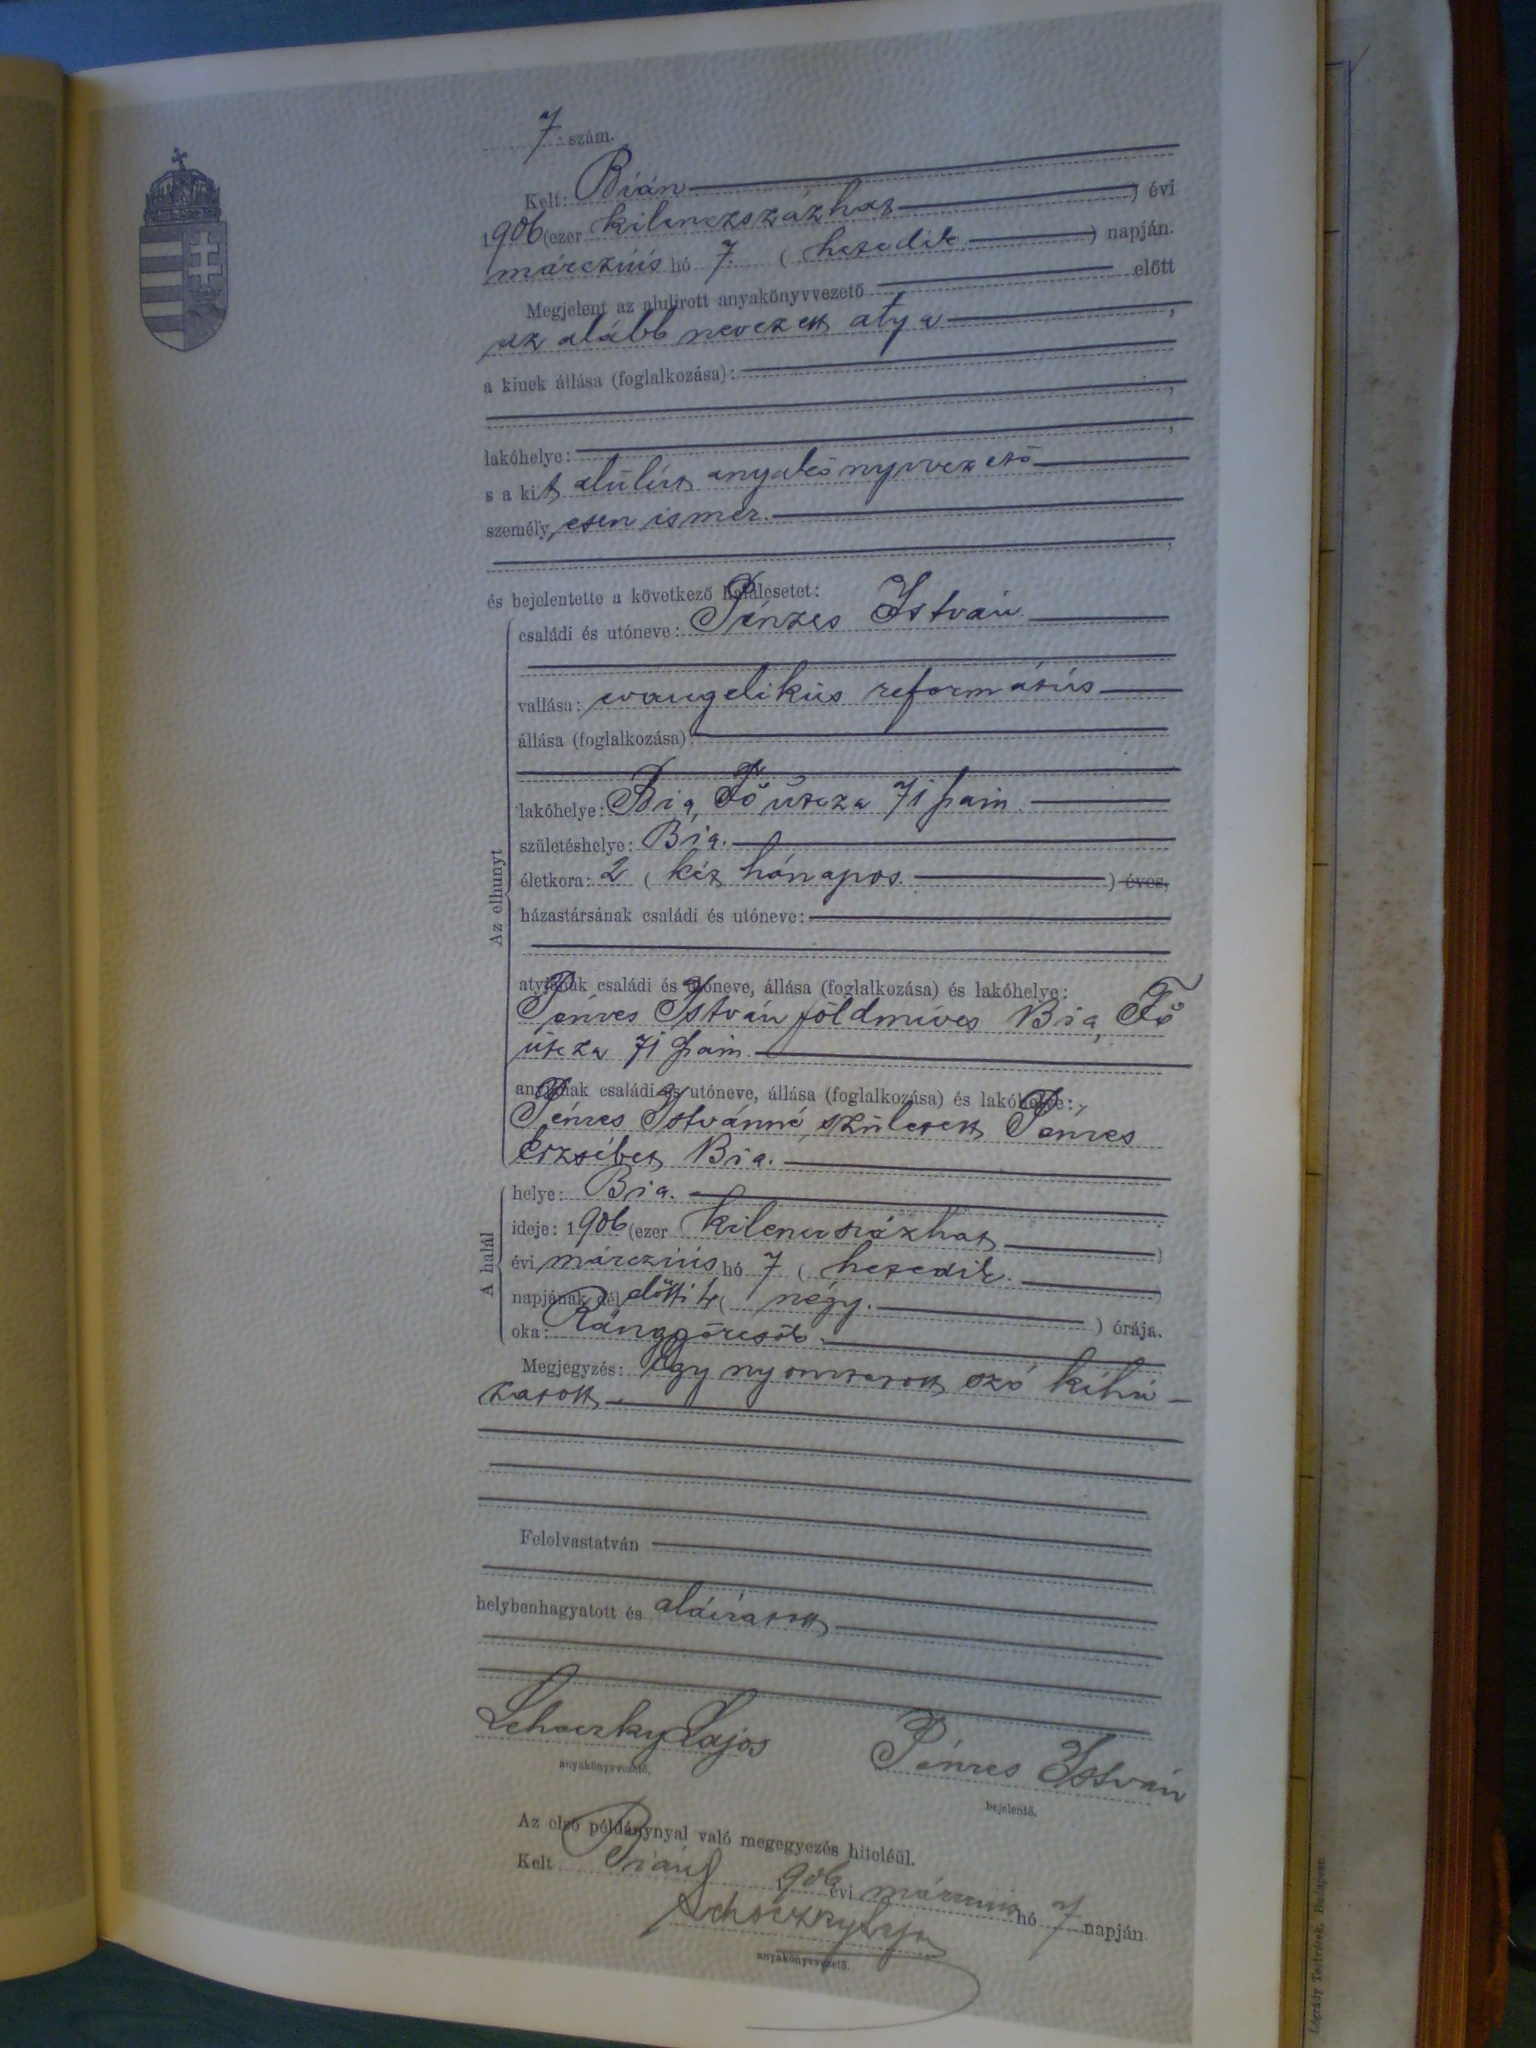 7. szám.
Kelt: Bián
1906 (ezer kilenczszázhat ) évi
márczius hó 7. ( hetedik ) napján.
Megjelent az alulirott anyakönyvvezető előtt
az alább nevezett atya ,
a kinek állása (foglalkozása):
,
lakóhelye: ,
s a kit alulírt anyakönyvvezető
személyesen ismer.
,
és bejelentette a következő halálesetet:
Az elhunyt
családi és utóneve: Pénzes István
vallása: evangelikus református
állása (foglalkozása)
lakóhelye: Bia, Fő útcza 71 szám.
születéshelye: Bia.
életkora: 2 ( két hónapos. ) éves,
házastársának családi és utóneve:
atyjának családi és utóneve, állása (foglalkozása) és lakóhelye:
Pénzes István földmíves Bia, Fő
útcza 71 szám.
anyjának családi és utóneve, állása (foglalkozása) és lakóhelye:
Pénzes Istvánné, született Pénzes
Erzsébet Bia.
A halál
helye: Bia.
ideje: 1906 (ezer kilenczszázhat )
évi márczius hó 7 ( hetedik. )
napjának dél előtti 4 ( négy. ) órája.
oka: Ránggörcsök.
Megjegyzés: Egy nyomtatott szó kihú-
zatott
Felolvastatván
helybenhagyatott és aláíratott
Lehoczky Lajos Pénzes István
anyakönyvvezető. bejelentő.
Az első példánynyal való megegyezés hiteléül.
Kelt Bián 1906 évi márczius hó 7 napján.
Lehoczky Lajos
anyakönyvvezető.
Légrády Testvérek, Budapest